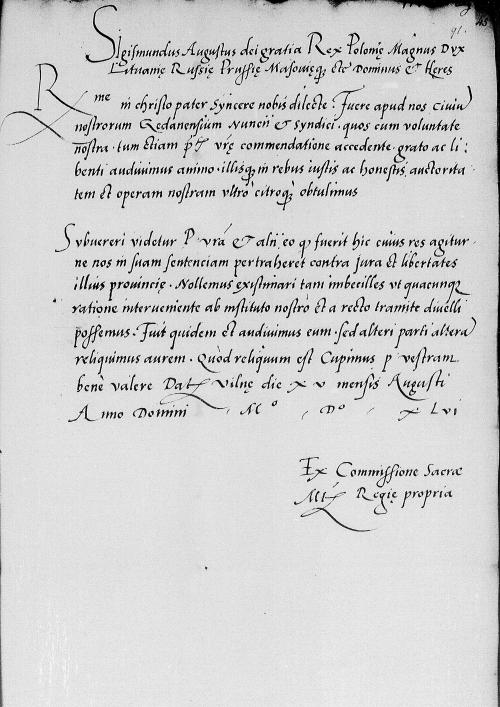 91.
45
Sigismundus Augustus dei gratia Rex Polonię Magnus Dux
Lituanię Russię Prussię Masouięq3 etc Dominus & Heres
Rme in christo pater Syncere nobis dilecte. Fuere apud nos Ciuiū
nostrorum Gedanensium Nuncij & Syndici. quos cum voluntate
nostra. tum etiam p. vrę commendatione accedente. grato ac li:
benti audiuimus animo. illisq3 in rebus iustis ac honestis auctorita
tem et operam nostram vltro citroq3 obtulimus
Subuereri videtur P vrā & alij eo q fuerit hic cuius res agitur
ne nos in suam sentenciam pertraheret contra jura et libertates
illius prouincię. Nollemus existimari tam imbecilles vt quacunq3
ratione interueniente ab instituto nostro et a recto tramite diuelli
possemus. Fuit quidem et audiuimus eum. sed alteri parti alterā
reliquimus aurem. Quod reliquum est Cupimus p vestram
bene valere Dat Vilnę die x v mensis Augusti
Anno Domini . Mo . Do . x Lvi
Ex Commissione Sacrae
Mt Regię propria